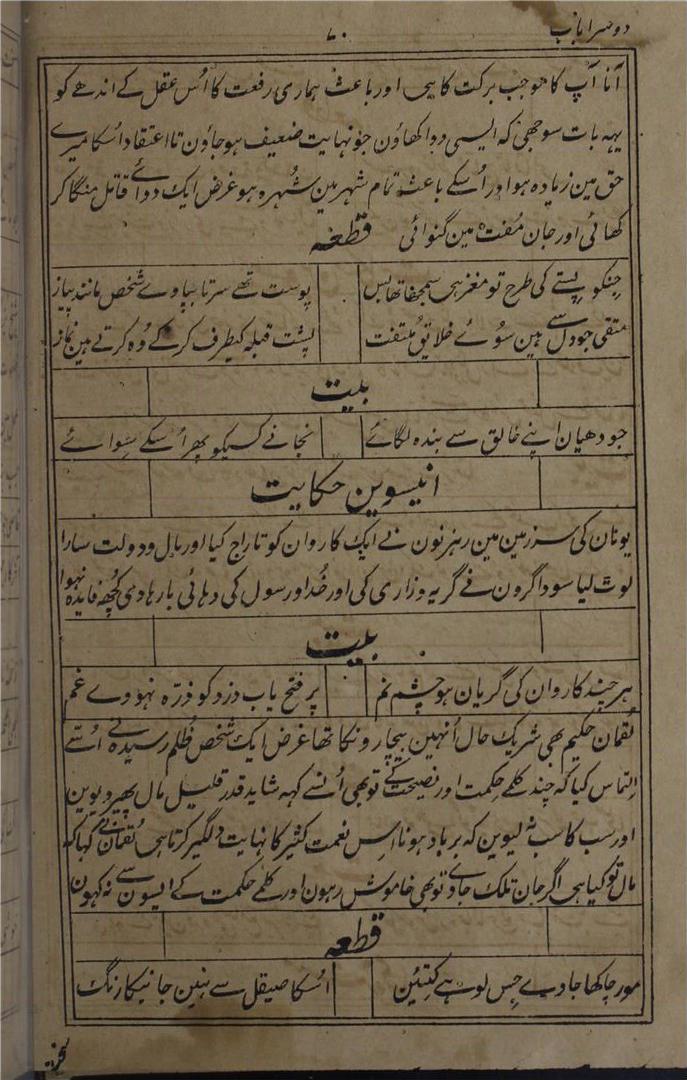 دوسرا باب
۷۰
آنا آپ کا موجب برکت کا ہی اور باعث ہماری رفعت کا اُس عقل کے اندھے کو
یہہ بات سوجھی کہ ایسی دوا کھاؤن جو نہایت ضعیف ہو جاؤن تا اعتقاد اُسکا میرے
حق مین زیادہ ہو اور اُسکے باعث تمام شہر مین شُہرہ ہو غرض ایک دوائے قاتل منگا کر
کھائی اور جان مُفت مین گنوائی قطعہ
جنکو پستے کی طرح تو مغز ہی سمجھا تھا بس پوست تھے سرتا بپا وے شخص مانند پیاز
متقی جو دل سے ہین سوئے خلایق مُلتفت پشت قبلہ کیطرف کر کے وُہ کرتے ہین نماز
بیت
جو دھیان اپنے خالق سے بندہ لگائے نجانے کسیکو پھر اُسکے سِوائے
انیسوین حکایت
یونان کی سرزمین مین رہزنون نے ایک کاروان کو تاراج کیا اور مال و دولت سارا
لوٹ لیا سوداگرون نے گریہ و زاری کی اور خُدا و رسول کی دہائی بارہا دی کُچھہ فایدہ نہوا
بیت
ہر چند کاروان کی گریان ہو چشم نم پر فتح یاب دزد کو ذرّہ نہووے غم
لُقمان حکیم بھی شریک حال اُنہین بیچارونکا تھا غرض ایک شخص ظُلم رسیدہ نے اُسّے
التماس کیا کہ چند کلمے حِکمت اور نصیحت کے تو بھی اُنسے کہہ شاید قدر قلیل مال پھیر دیوین
اور سب کا سب نہ لیوین کہ برباد ہونا اِس نعمت کثیر کا نہایت دلگیر کرتا ہی لُقمان نے کہا کہ
مال تو کیا ہی اگر جان تلک جاوے تو بھی خاموش رہون اور کلمے حکمت کے ایسون سے نہ کہون
قطعہ
مورچا کھا جاوے جس لوہے کتیئن اُسکا صیقل سے نہین جانیکا زنگ